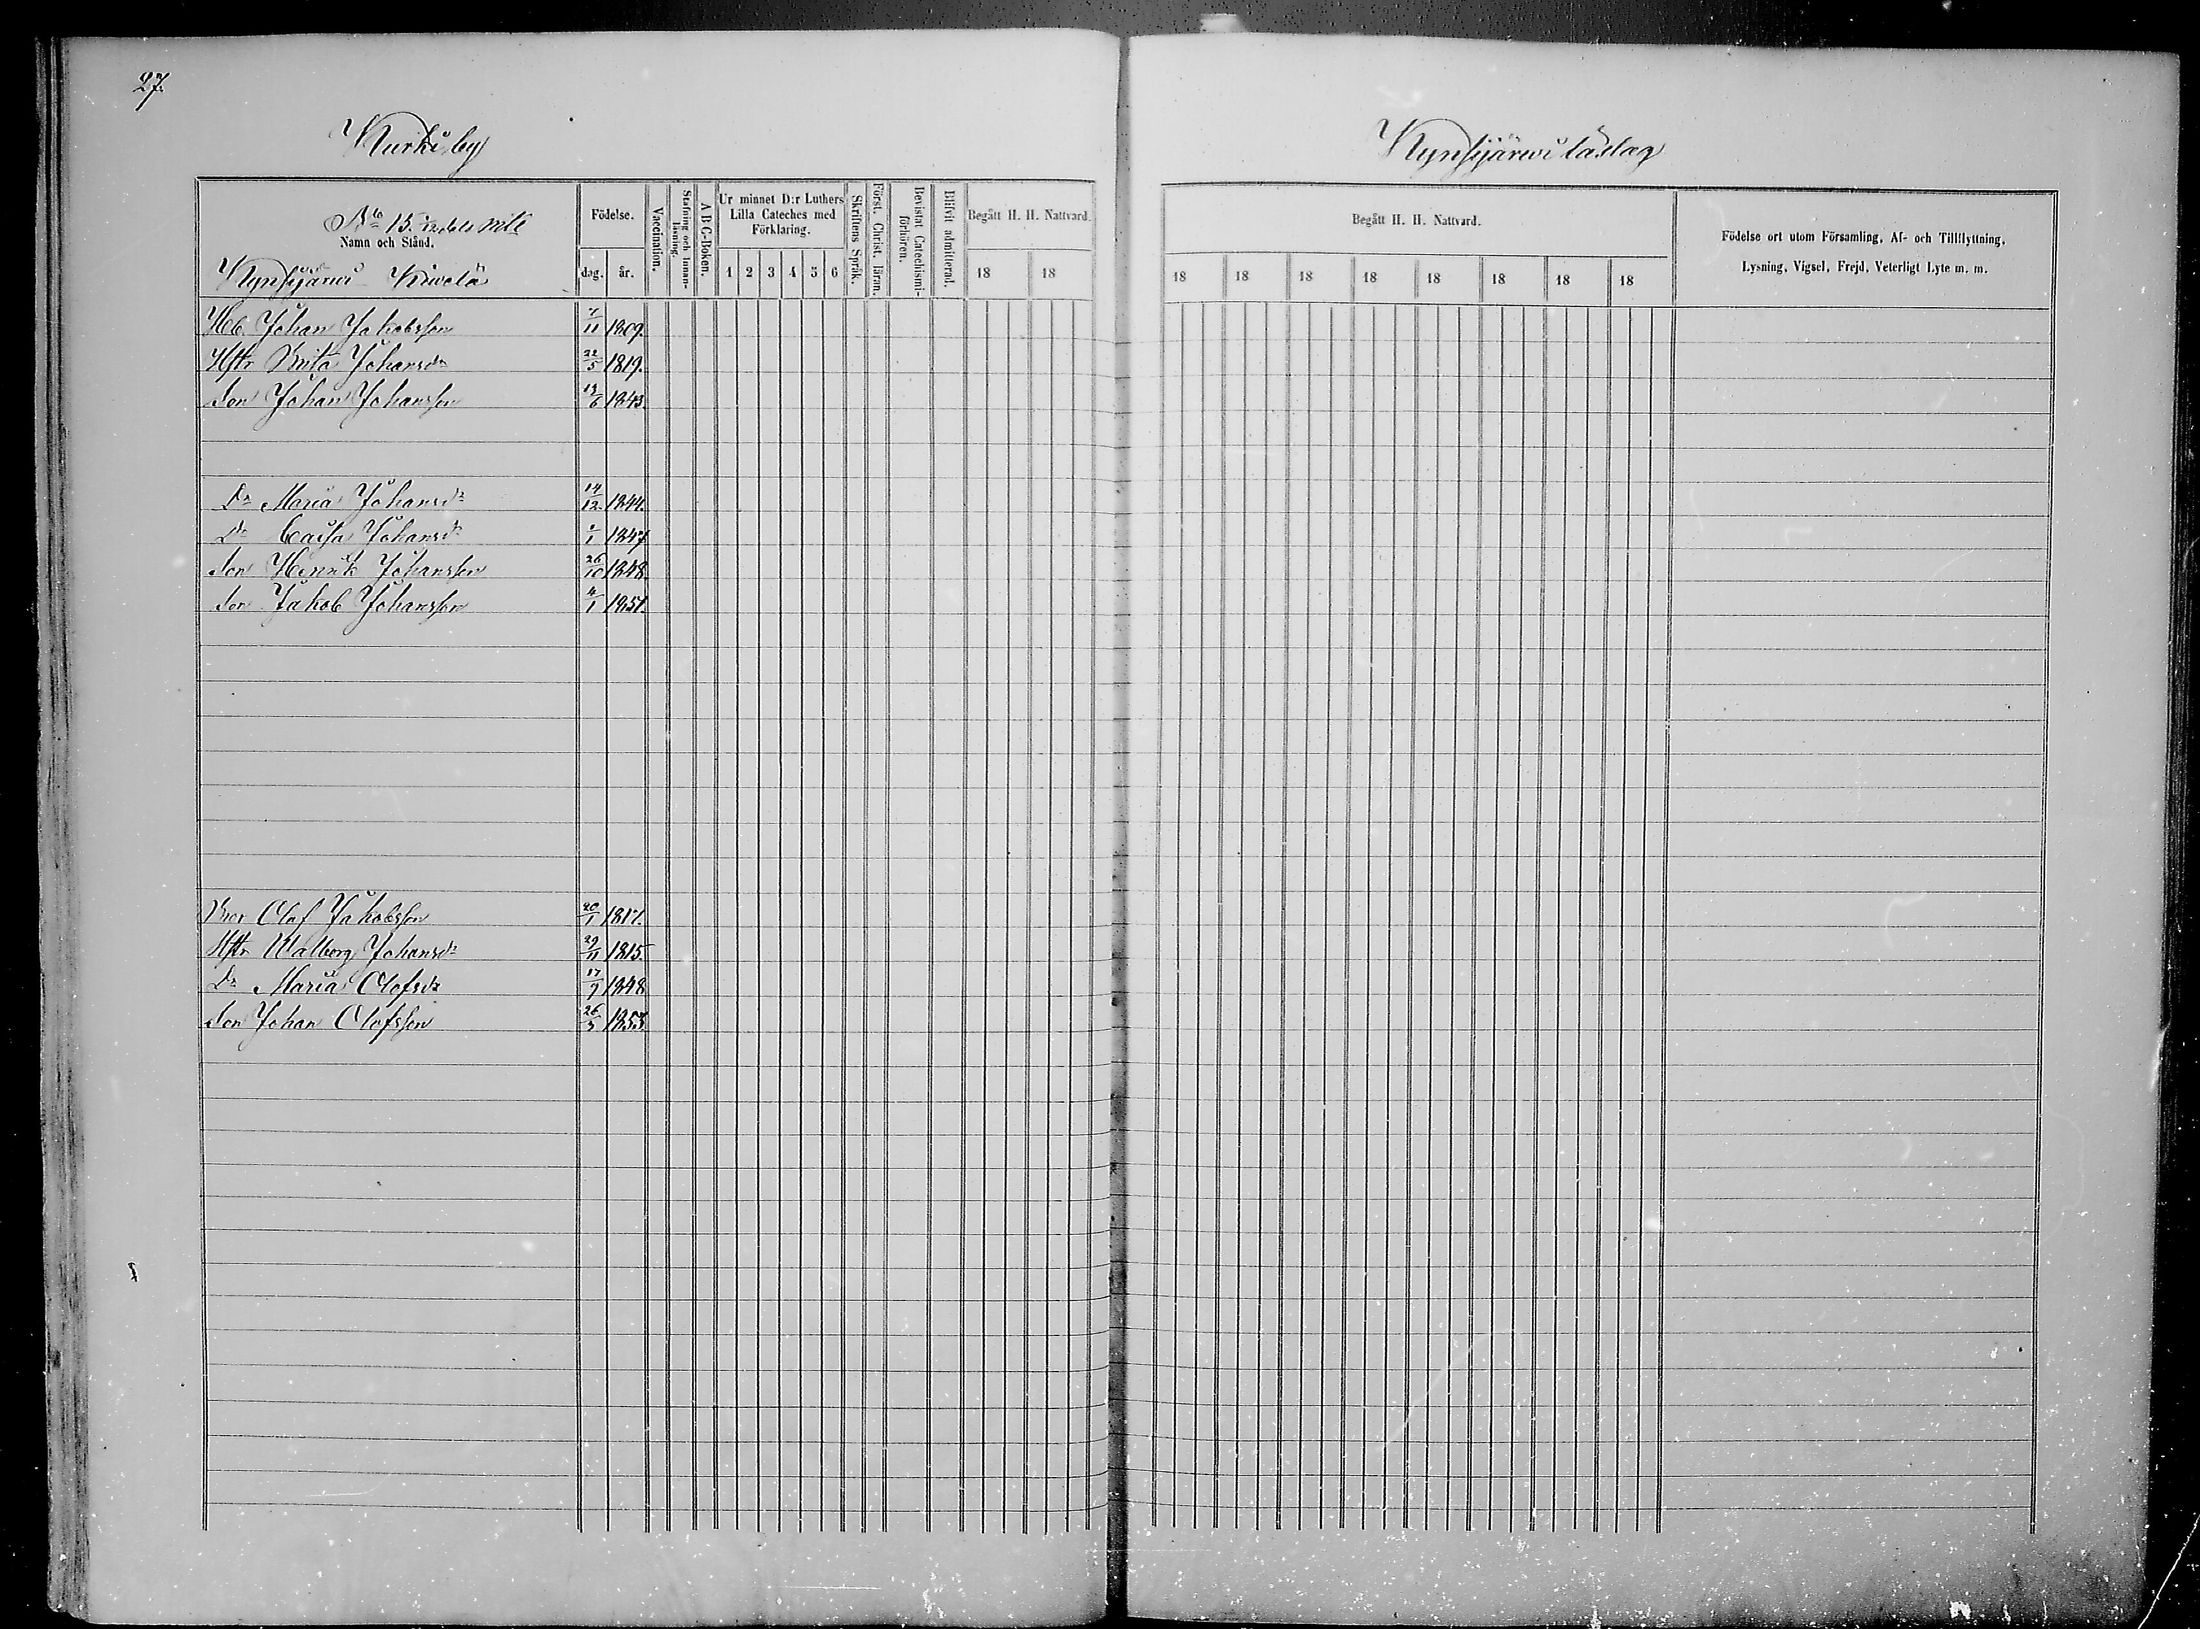 27.
Kurki by
Kynsijärwi läslag
No 15. mtl
Namn och Stånd.
Kynsijärwi Kiwelä
Födelse.
dag. år.
Vaccination.
Stafning och Innan-läsning.
A B C-Boken.
Ur minnet D:r Luthers Lilla Cateches med Förklaring.
1 2 3 4 5 6
Skriftens Språk.
Först. Christ. läran.
Bevistat Catechismi-förhören.
Blifvit admitterad.
Begått H. H. Nattvard.
18 18
Begått H. H. Nattvard.
18 18 18 18 18 18 18 18
Födelse ort utom Församling, Af- och Tillflyttning,
Lysning, Vigsel, Frejd, Veterligt Lyte m. m.
Hb. Johan Jakobsson 7/11 1809.
Hstr Brita Johansdr 22/5 1819.
Son Johan Johansson 13/6 1843.
Dr Maria Johansdr 14/12 1844.
Dr Caisa Johansdr 1/1 1847
Son Henrik Johansson 26/10 1848.
Son Jakob Johansson 4/1 1851.
Bror Olof Jakobsson 20/1 1817.
Hstr Walborg Johansdr 29/11 1815.
Dr Maria Olofsdr 17/9 1848
Son Johan Olofsson 26/3 1853.